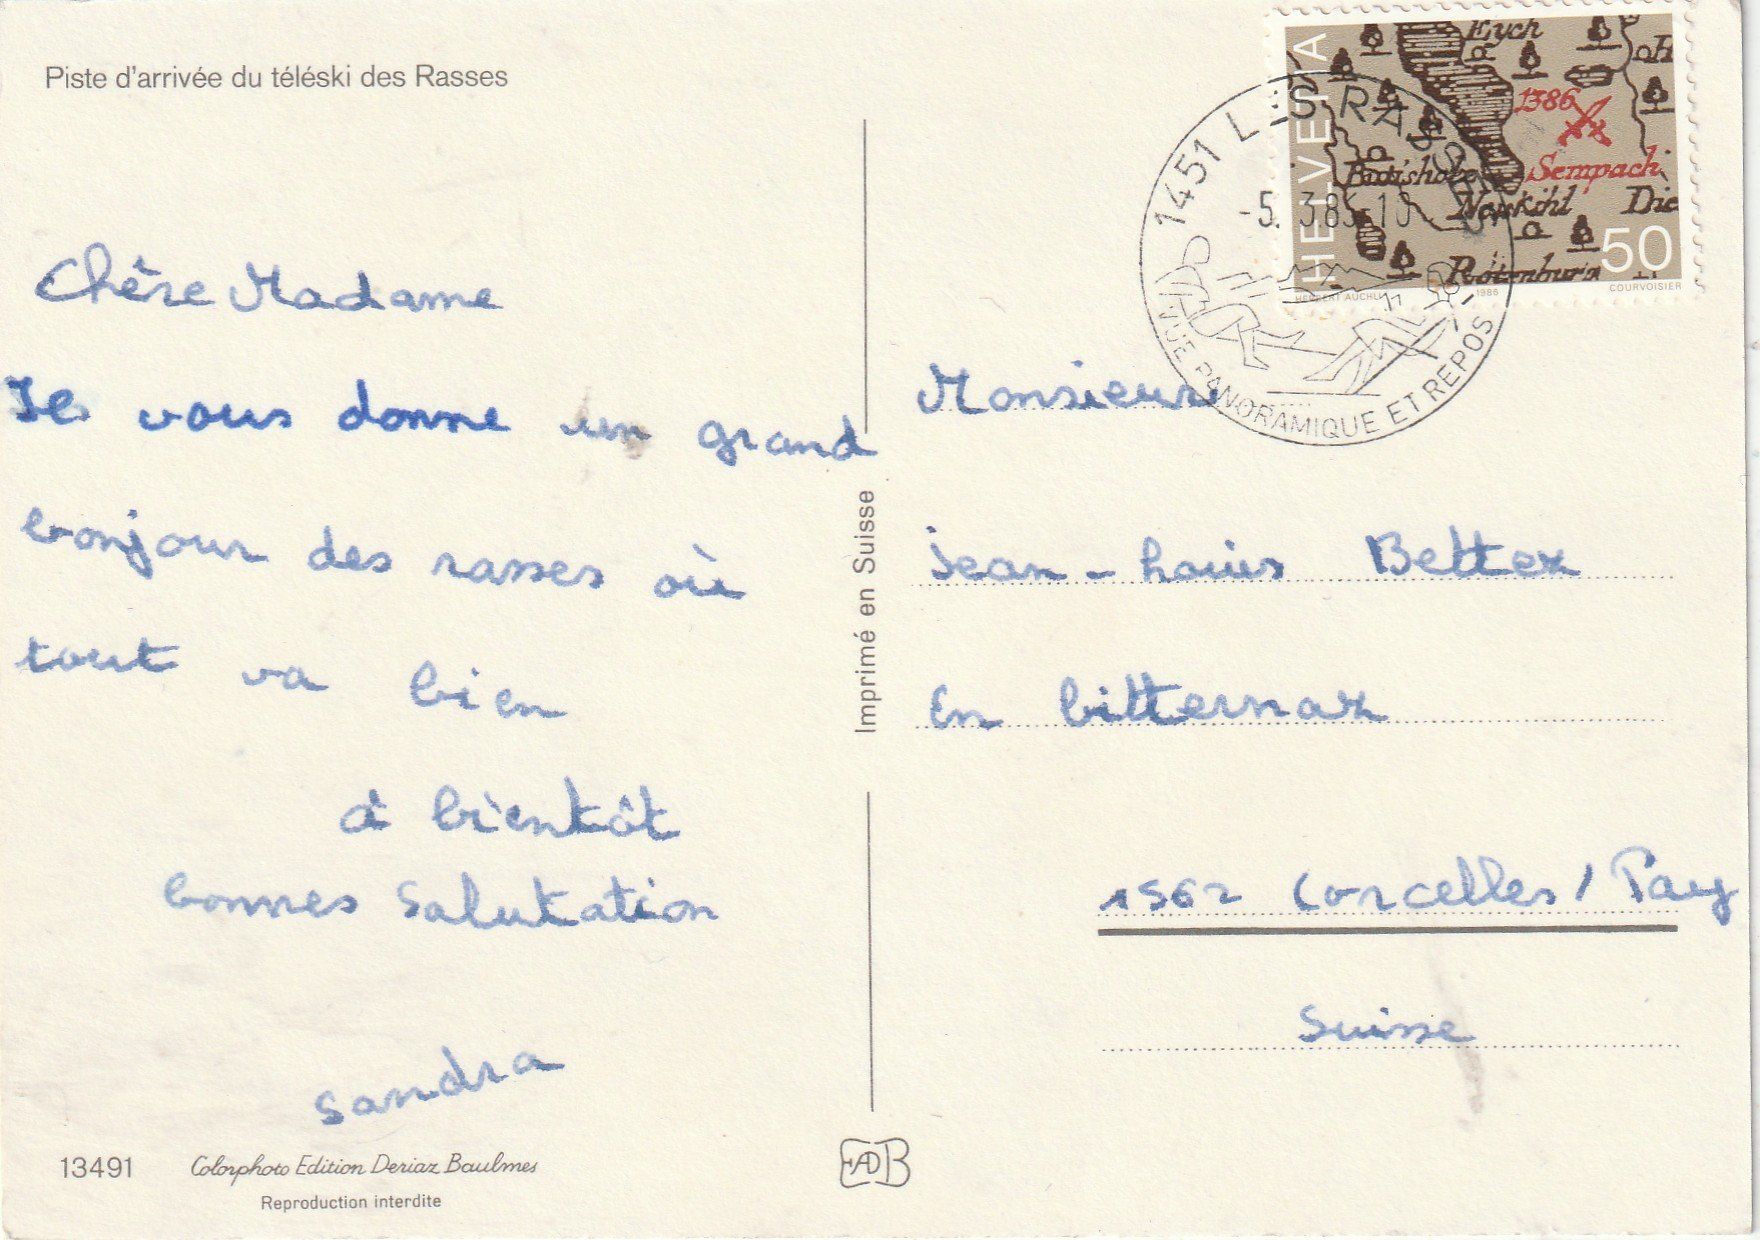 Piste d'arrivée du téléski des Rasses
Chère Madame
Je vous donne un grand
bonjour des rasses où
tout va bien
à bientôt
bonnes Salutation
sandra
13491
Colorphoto Edition Deriaz Baulmes
Reproduction interdite
Imprimé en Suisse
EDB
1451 LES RASSES
-5. 3.8
VUE PANORAMIQUE ET REPOS
HELVETIA
Eych
1386
Sempach
Neükihl
Die
Rötenburg
50
HERBERT AUCHLI
1986
COURVOISIER
Monsieur
jean-Louis Bettex
En bitternaz
1562 Corcelles / Pay
Suisse